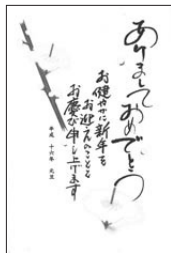 あけましておめでとう
お健やかに新年を
お迎えのことと
お慶び申し上げます
平成 十六年 元旦